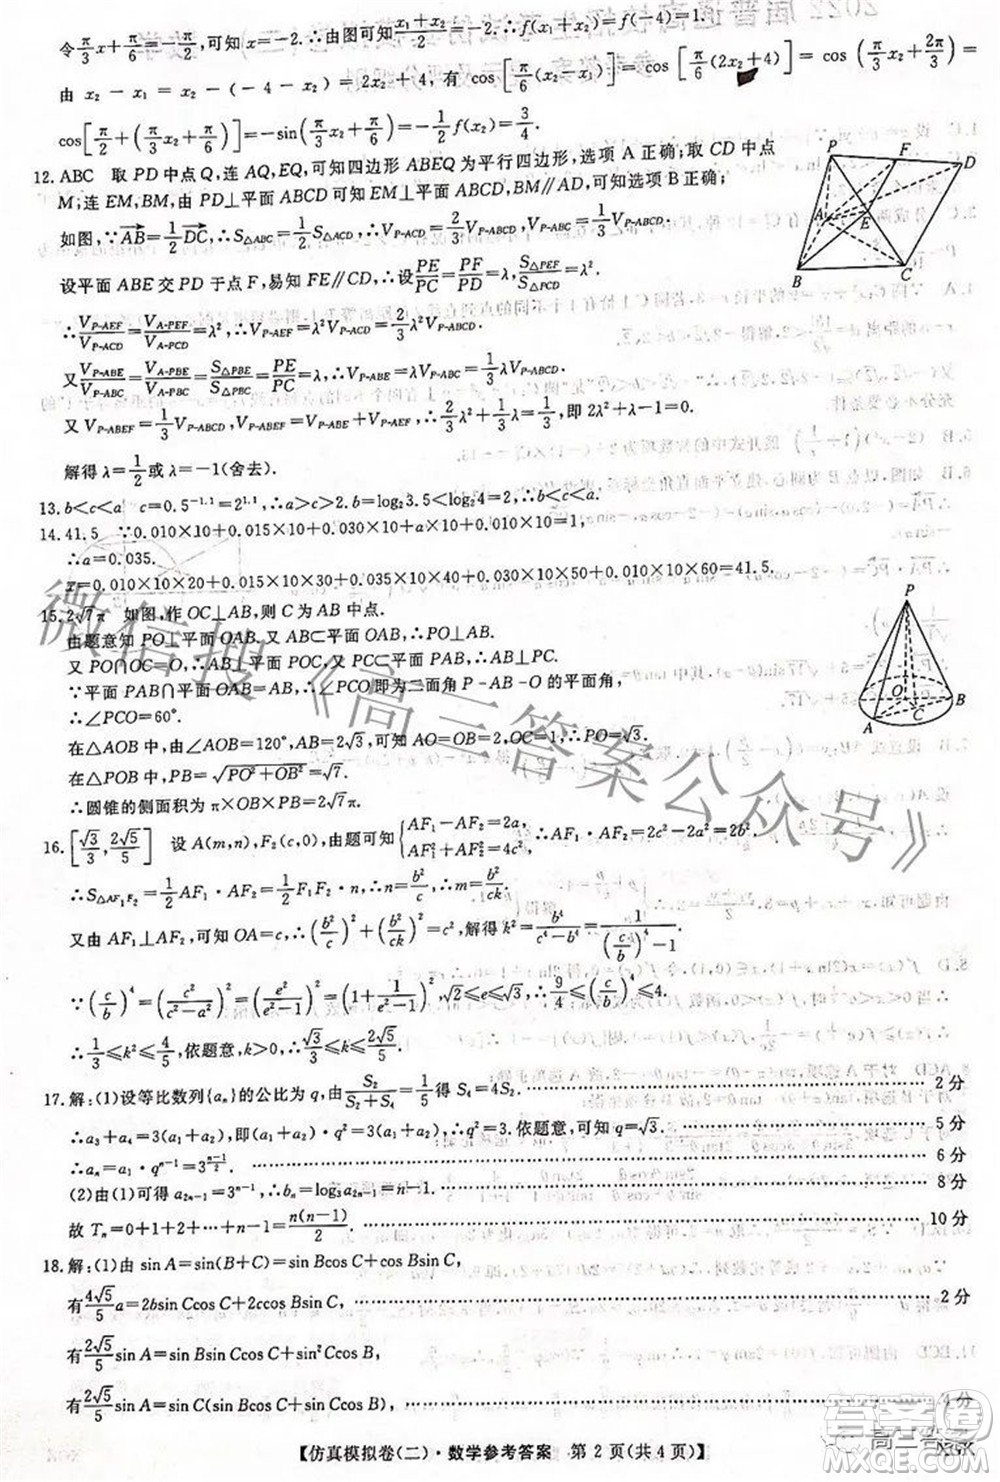 令π/3x+π/6=-π/2,可知x=-2.∴由图可知(x₁+x₂)/2=-2.∴f(x)=f(-4)=1.
由 x₂-x₁=x₂-(-4-x₂)=2x₂+4,有 cos[π/6(x₂-x₁)]=cos[π/6(2x₂+4)]=cos(π/3x₂+2π/3)=
cos[π/2+(π/3x₂+π/6)]=-sin(π/3x₂+π/6)=-1/2f(x₂)=3/4.
12.ABC 取PD中点Q,连AQ,EQ,可知四边形ABEQ为平行四边形,选项A正确;取CD中点
M;连EM,BM,由PD⊥平面ABCD可知EM⊥平面ABCD,可知选项B正确;
如图,∵AB→=1/2DC→,∴S△ABC=1/2S△ACD,∴V_P-ACD=2V_P-ABC=2/3V_P-ABCD,V_P-ABC=1/3V_P-ABCD.
设平面ABE交PD于点F,易知FE∥CD,∴设PE/PC=PF/PD=λ,∴S△PEF/S△PCD=λ².
∴V_P-AEF/V_P-ACD=V_A-PEF/V_A-PCD=λ²,∴V_P-AEF=λ²V_P-ACD=2/3λ²V_P-ABCD.
又V_P-ABE/V_P-ABC=V_A-PBE/V_A-PBC=S△PBE/S△PBC=PE/PC=λ,∴V_P-ABE=λV_P-ABC=1/3λV_P-ABCD.
又V_P-ABEF=1/3V_P-ABCD,V_P-ABEF=V_P-ABE+V_P-AEF,∴2/3λ²+1/3λ=1/3,即2λ²+λ-1=0.
解得λ=1/2或λ=-1(舍去).
13.b<c<a c=0.5^-1.1=2^1.1,∴a>c>2.b=log₂3.5<log₂4=2,∴b<c<a.
14.41.5 ∵0.010×10+0.015×10+0.030×10+a×10+0.010×10=1,
∴a=0.035.
x̄=0.010×10×20+0.015×10×30+0.030×10×40+0.035×10×50+0.010×10×60=41.5.
15.2√7π 如图,作OC⊥AB,则C为AB中点.
由题意知PO⊥平面OAB.又AB⊂平面OAB,∴PO⊥AB.
又PO∩OC=O,∴AB⊥平面POC.又PC⊂平面POC,∴PC⊥AB.
∵平面PAB∩平面OAB=AB,∴∠PCO即为二面角P-AB-O的平面角,
∴∠PCO=60°.
在△AOB中,由∠AOB=120°,AB=2√3,可知AO=OB=2,OC=1,∴PO=√3.
在△POB中,PB=√(PO²+OB²)=√7.
∴圆锥的侧面积为π×OB×PB=2√7π.
16.[√3/3,2√5/5] 设A(m,n),F₂(c,0),由题可知{AF₁-AF₂=2a, AF₁²+AF₂²=4c²,∴AF₁·AF₂=2c²-2a²=2b².
∴S△AF₁F₂=1/2AF₁·AF₂=1/2F₁F₂·n,∴n=b²/c,∴m=b²/ck.
又由AF₁⊥AF₂,可知OA=c,∴(b²/c)²+(b²/ck)²=c²,解得k²=b⁴/(c⁴-b⁴)=1/((c/b)⁴-1).
∵(c/b)⁴=(c²/(c²-a²))²=(e²/(e²-1))²=(1+1/(e²-1))²,√2≤e≤√3,∴9/4≤(c/b)⁴≤4.
∴1/3≤k²≤4/5,依题意,k>0,∴√3/3≤k≤2√5/5.
17.解:(1)设等比数列{aₙ}的公比为q,由S₂/(S₂+S₄)=1/5得S₄=4S₂. 2分
∴a₃+a₄=3(a₁+a₂),即(a₁+a₂)·q²=3(a₁+a₂),∴q²=3.依题意,可知q=√3. 5分
∴aₙ=a₁·qⁿ⁻¹=3^((n-1)/2). 6分
(2)由(1)可得a₂ₙ₋₁=3ⁿ⁻¹,∴bₙ=log₃a₂ₙ₋₁=n-1. 8分
故Tₙ=0+1+2+…+n-1=n(n-1)/2. 10分
18.解:(1)由sin A=sin(B+C)=sin Bcos C+cos Bsin C,
有4√5/5a=2bsin Ccos C+2ccos Bsin C, 2分
有2√5/5sin A=sin Bsin Ccos C+sin²Ccos B,
有2√5/5sin A=sin C(sin Bcos C+cos Bsin C), 4分
【仿真模拟卷(二)·数学参考答案 第2页(共4页)】
微信搜《高三答案公众号》